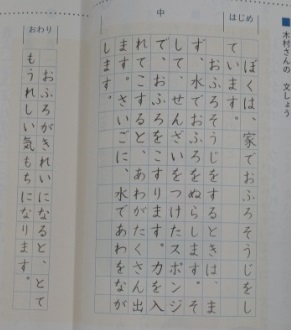 木村さんの 文しょう
はじめ
ぼくは、家でおふろそうじをし
ています。
中
おふろそうじをするときは、ま
ず、水でおふろをぬらします。そ
して、せんざいをつけたスポンジ
で、おふろをこすります。力を入
れてこすると、あわがたくさん出
ます。さいごに、水であわをなが
します。
おわり
おふろがきれいになると、とて
もうれしい気もちになります。